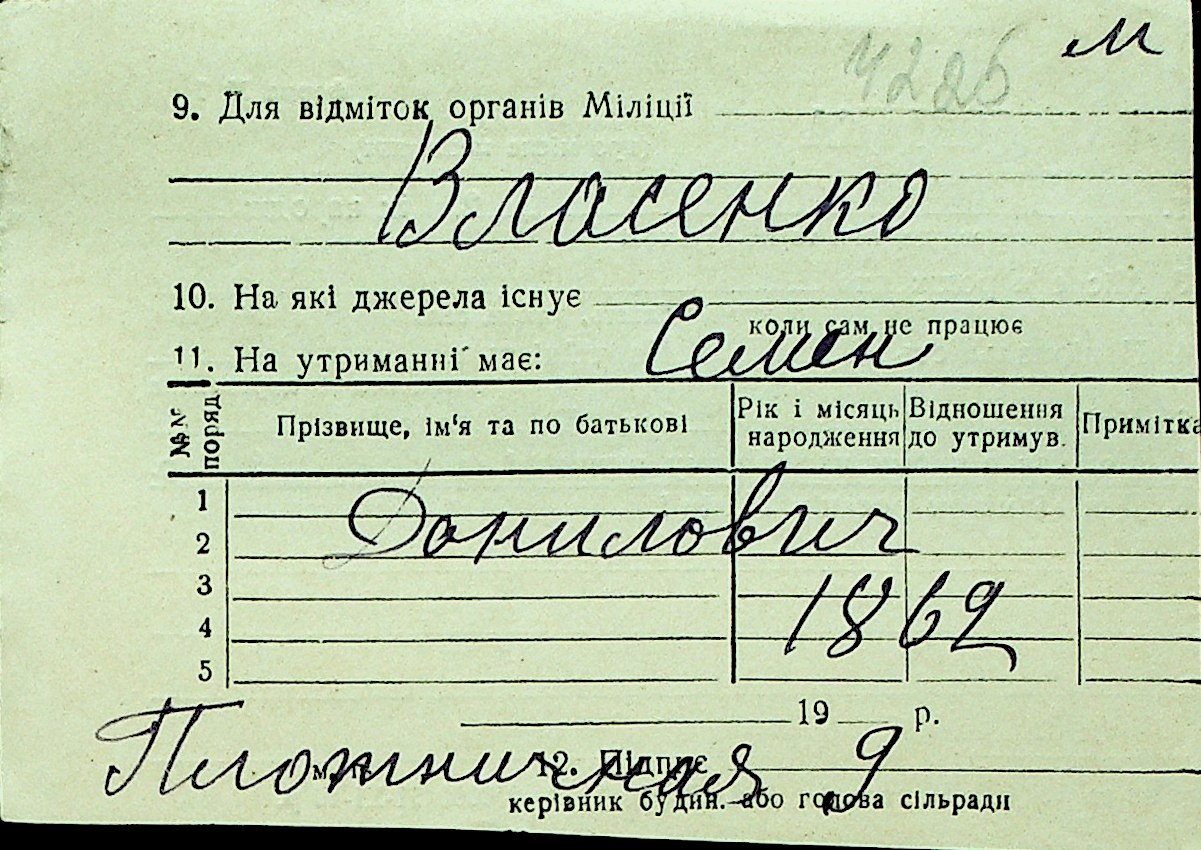 м
4226
9. Для відміток органів Міліції
Власенко
10. На які джерела існує
коли сам не працює
11. На утриманні має:
Семен
№№ поряд
Прізвище, ім'я та по батькові
Рік і місяць народження
Відношення до утримув.
Примітка
1
Данилович
2
3
1862
4
5
19 р.
Плотничная 9
12. Підпис
керівник будин. або голова сільради